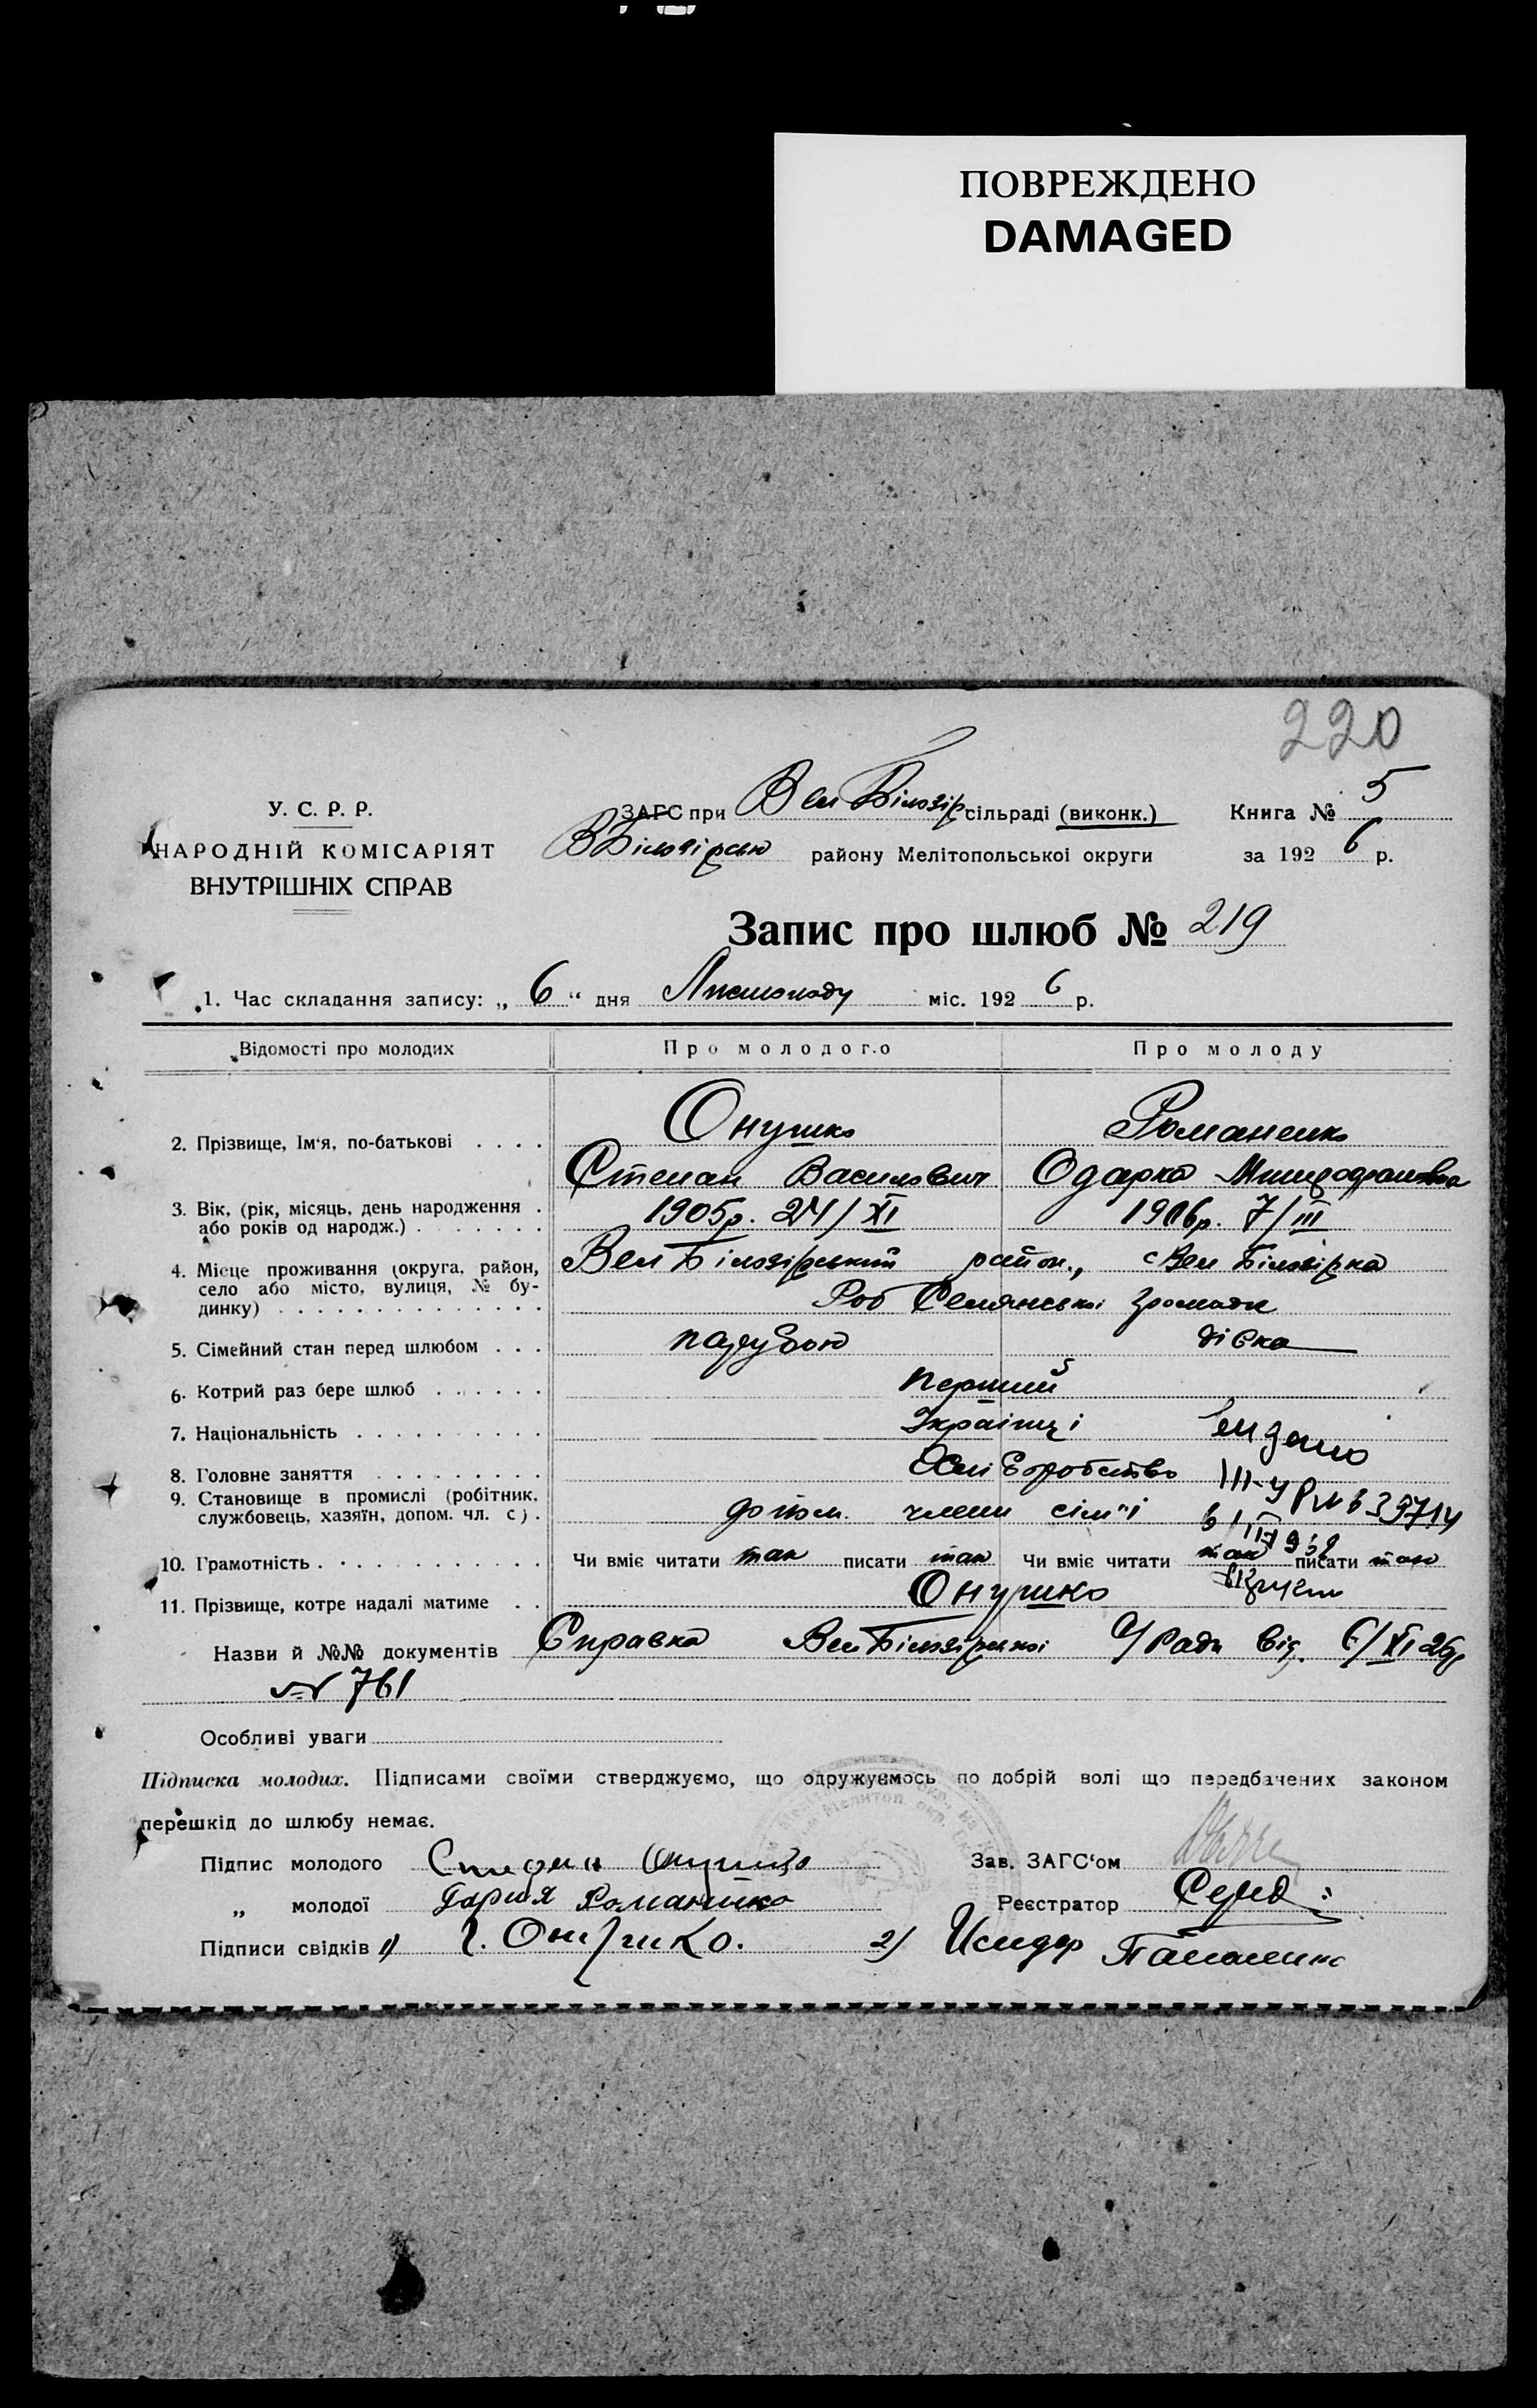 ПОВРЕЖДЕНО
DAMAGED
220
У. С. Р. Р.
НАРОДНІЙ КОМІСАРІЯТ
ВНУТРІШНІХ СПРАВ
ЗАГС при Вел Білозір сільраді (виконк.)
ВБілозірсью району Мелітопольської округи
Книга № 5
за 192 6 р.
Запис про шлюб № 219
1. Час складання запису: „ 6 “ дня Листопаду міс. 192 6 р.
Відомості про молодих Про молодого Про молоду
2. Прізвище, Ім‘я, по-батькові . . . . Онушко Романенко
Степан Василович Одарка
3. Вік, (рік, місяць, день народження .
або років од народж.) . . . . . . . 1905р. 24/XI 1906р. 7/III
4. Місце проживання (округа, район,
село або місто, вулиця, № бу-
динку) . . . . . . . . . . . . . .
Вел Білозірський район., с Вел Білозірка
Роб Селянської громади
5. Сімейний стан перед шлюбом . . . парубок дівка
6. Котрий раз бере шлюб . . . . . . перший
7. Національність . . . . . . . . . . Українці
8. Головне заняття . . . . . . . . . Хліборобство
9. Становище в промислі (робітник,
службовець, хазяїн, допом. чл. с) . допом. члени сім"ї
III-УР № 639714
10. Грамотність . . . . . . . . . . . . Чи вміє читати так писати так Чи вміє читати так писати так
11. Прізвище, котре надалі матиме . . Онушко
Назви й №№ документів Справка Вел Білозірської С/Ради від. 6/XI 26р
№ 761
Особливі уваги
Підписка молодих. Підписами своїми стверджуємо, що одружуємось по добрій волі що передбачених законом
перешкід до шлюбу немає.
Підпис молодого Онушко Зав. ЗАГС‘ом
„ молодої Дария Романенко Реєстратор Серед
Підписи свідків 1) Г. Онушко. 2) Исидор